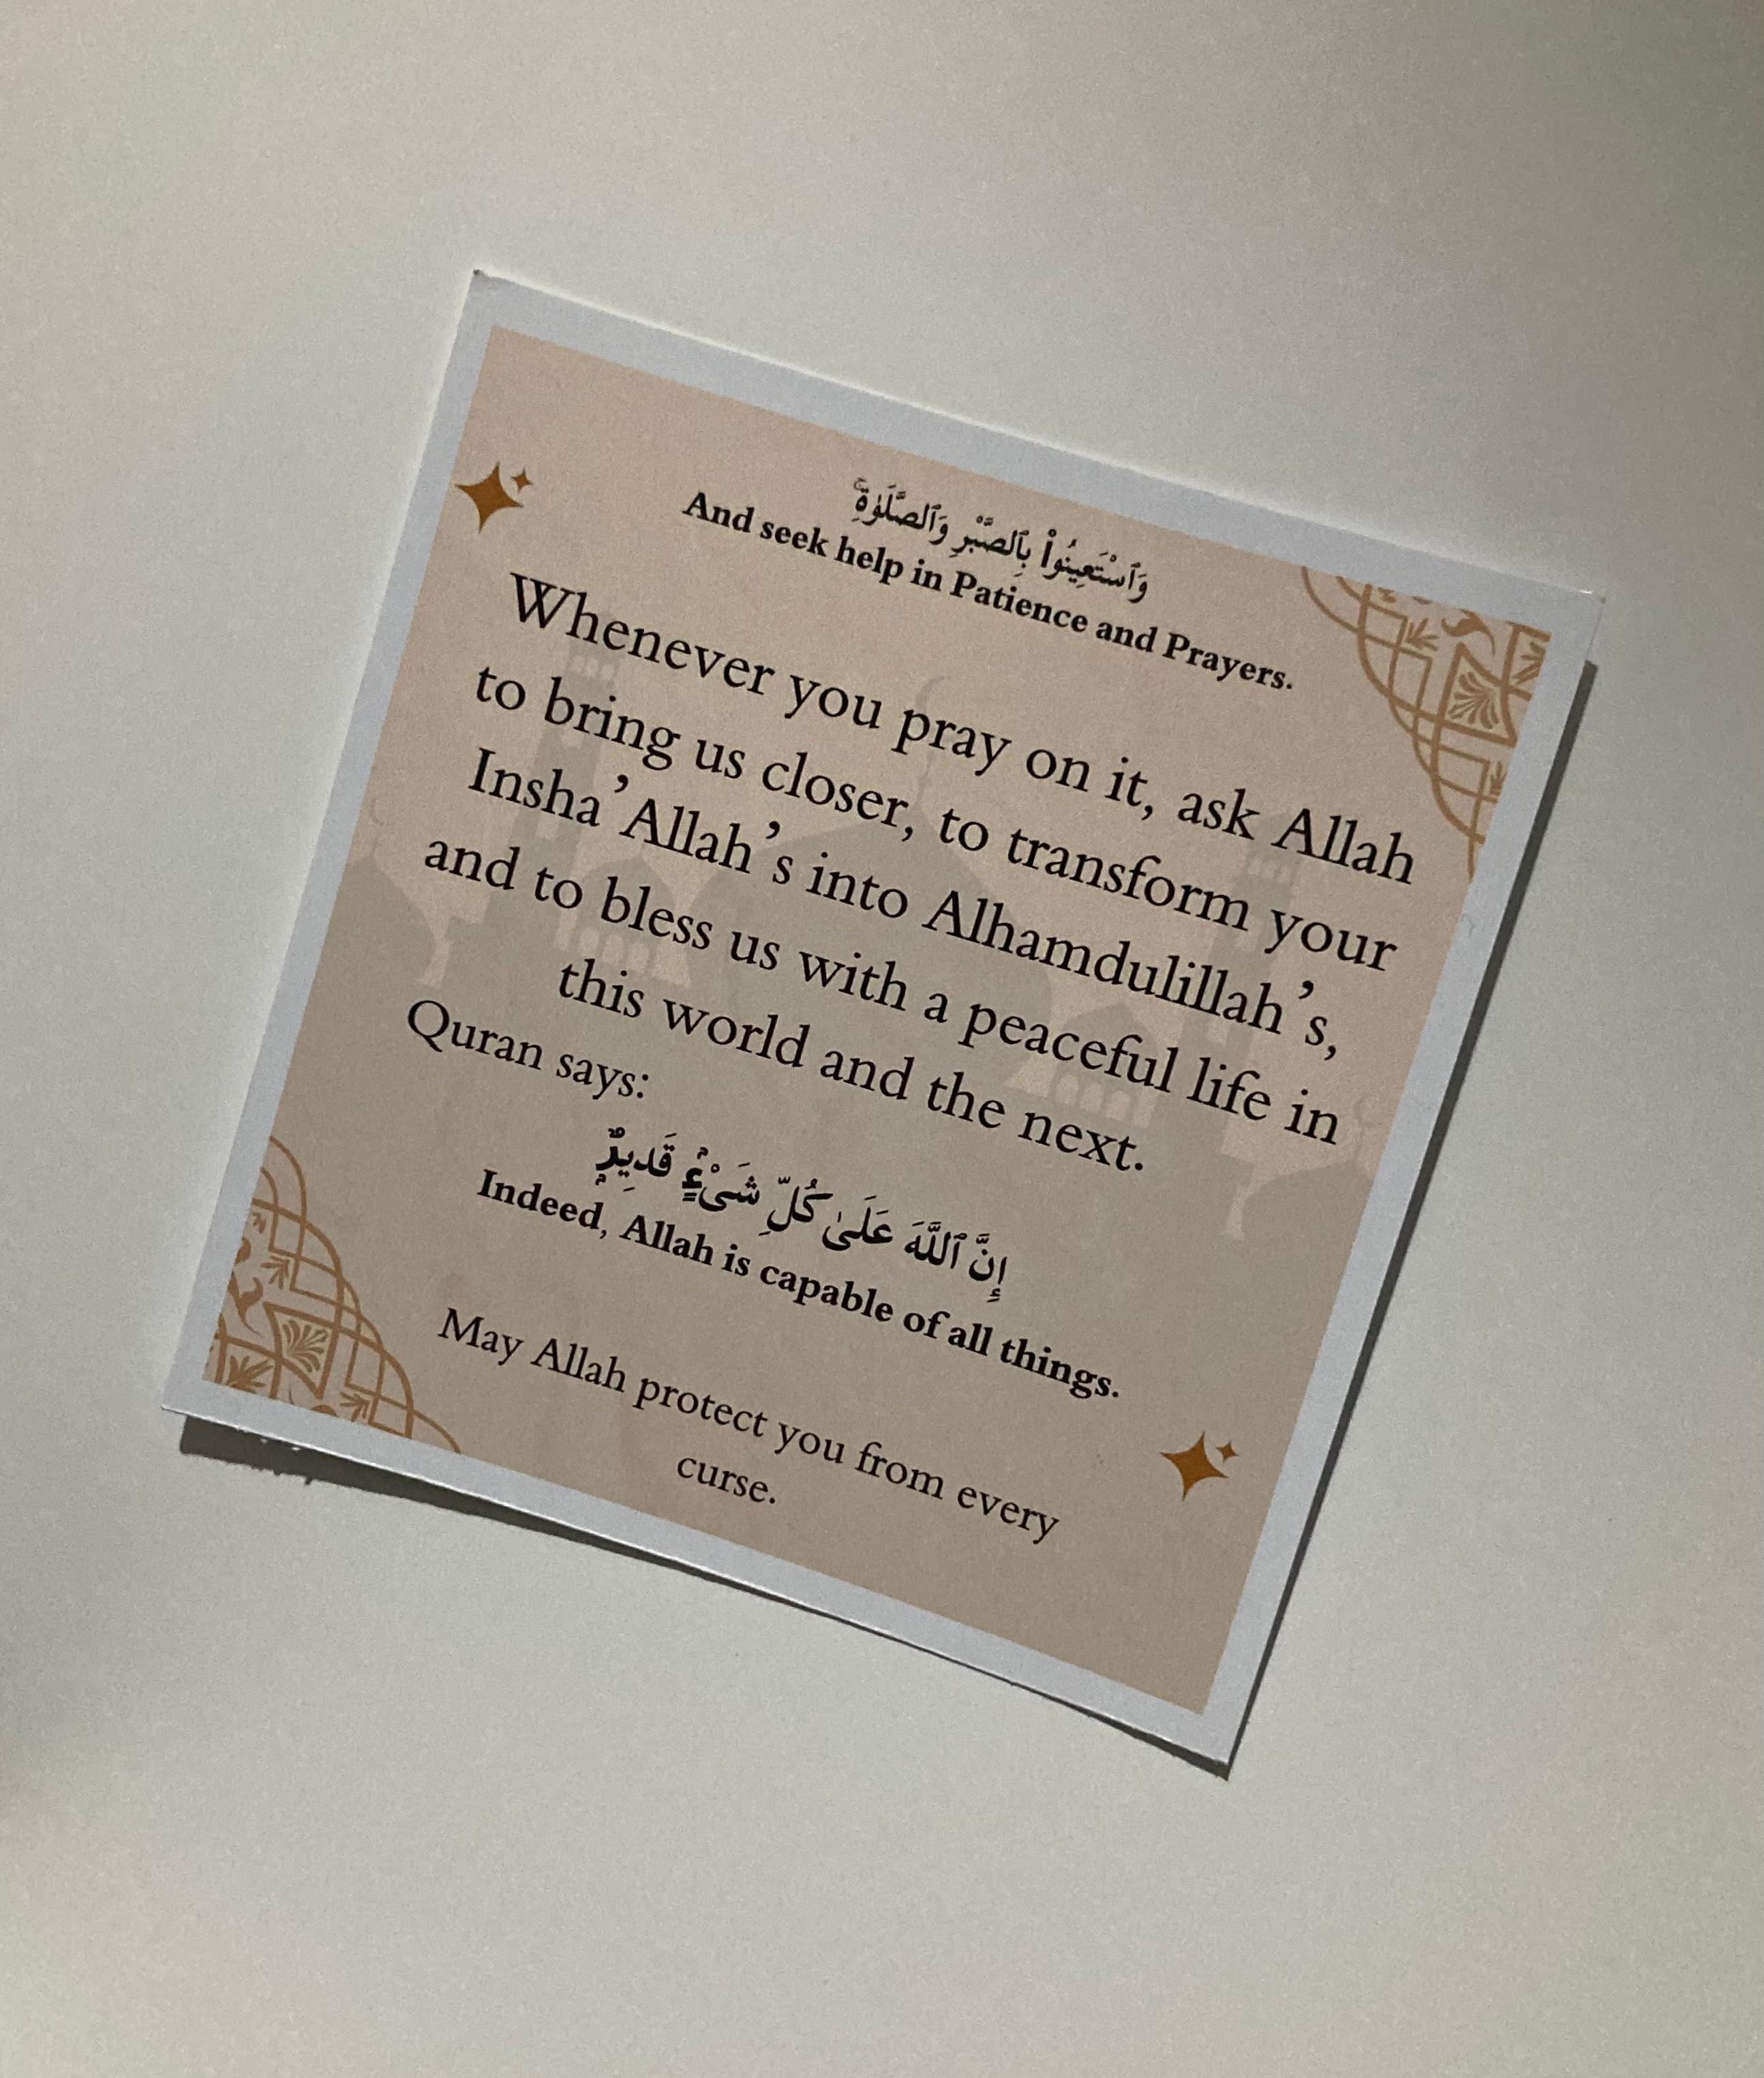 وَٱسْتَعِينُوا۟ بِٱلصَّبْرِ وَٱلصَّلَوٰةِۚ
And seek help in Patience and Prayers.
Whenever you pray on it, ask Allah
to bring us closer, to transform your
Insha’Allah’s into Alhamdulillah’s,
and to bless us with a peaceful life in
this world and the next.
Quran says:
إِنَّ ٱللَّهَ عَلَىٰ كُلِّ شَىْءٍۢ قَدِيرٌۭ
Indeed, Allah is capable of all things.
May Allah protect you from every
curse.